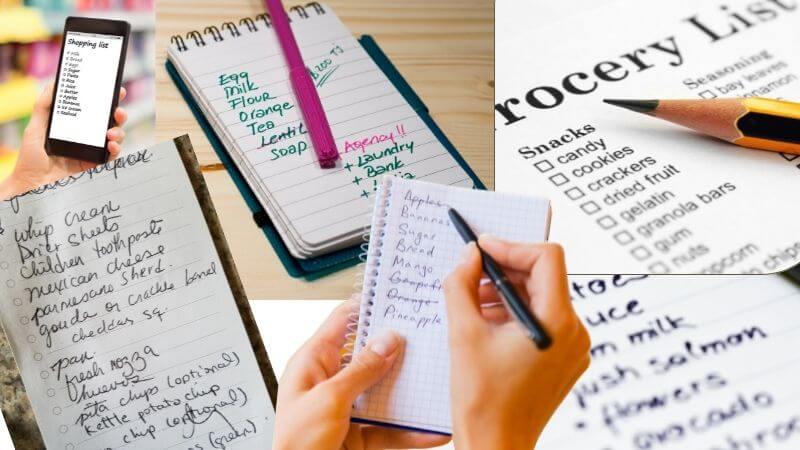 Shopping list
Milk
Bread
Eggs
Sugar
Pasta
Rice
Juice
Butter
Apples
Bananas
Ice cream
Seafood
Egg
Milk
Flour
Orange
Tea
Lentil
Soap
Agency!!
+ Laundry
+ Bank
rocery List
Snacks
candy
cookies
crackers
dried fruit
gelatin
granola bars
gum
nuts
popcorn
Seasoning
bay leaves
cinnamon
whip cream
Drier sheets
Children toothpaste
mexican cheese
parmesano sherd.
gouda or crackle barel
cheddar sq.
pan
fresh mozza
huevos
pita chips (optional)
kettle potato chip
chip (optional)
(green)
Apples
Bananas
Sugar
Bread
Mango
Grapefr
Orange
Pineapple
toes
uce
m milk
ush salmon
flowers
avocado